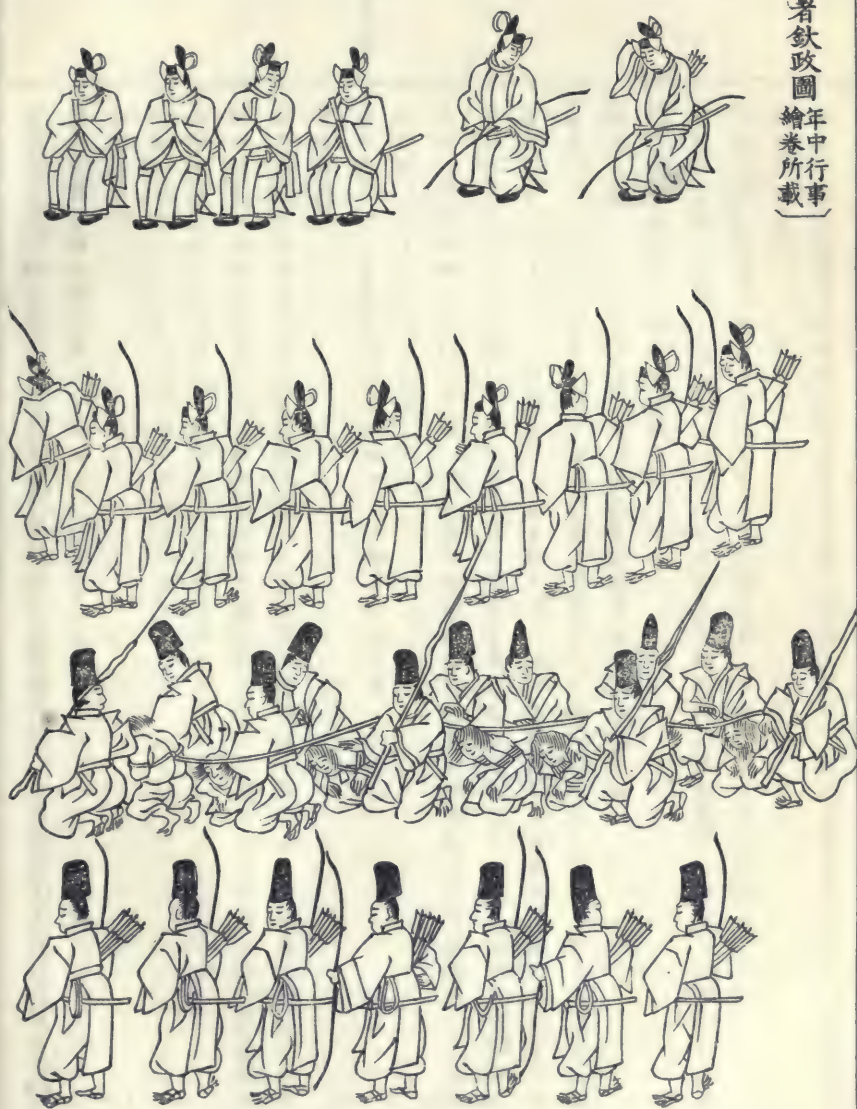 者鈦政圖
年中行事
繪卷所載